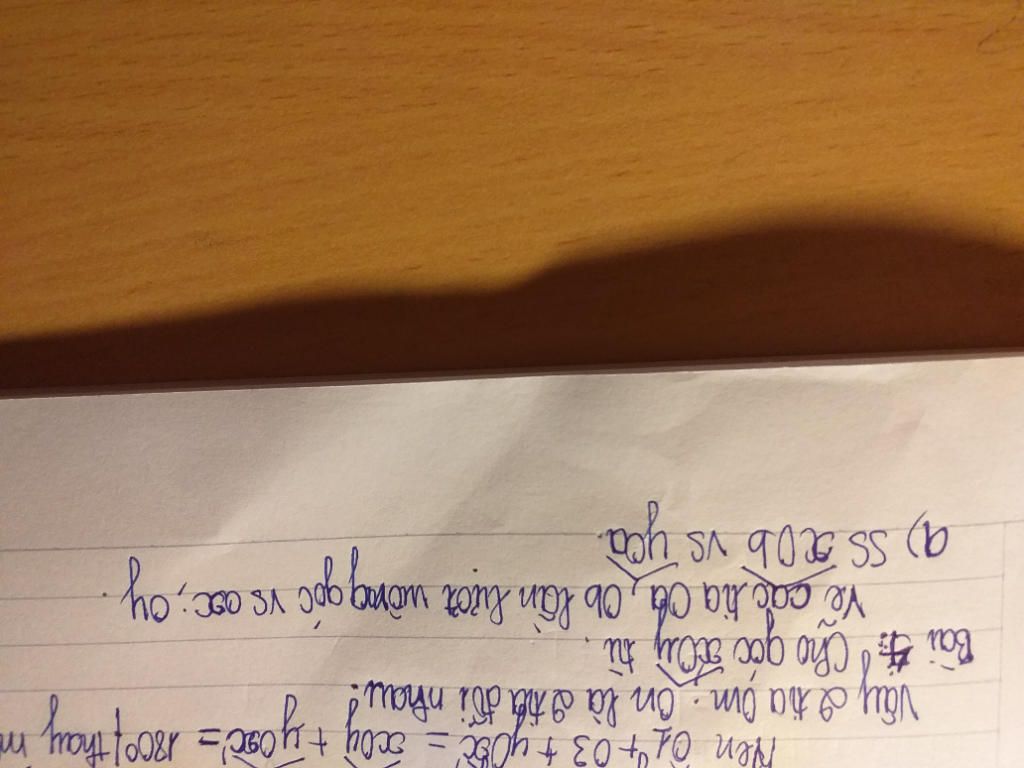 Nên O1 + O3 + yOx' = xOy + yOx' = 180°, thay m
Vậy 2 tia Om. On là 2 tia đối nhau.
Bài 4: Cho góc xOy tù.
Vẽ các tia Oa, Ob lần lượt vuông góc vs ox; oy.
a) SS xOb vs yOa